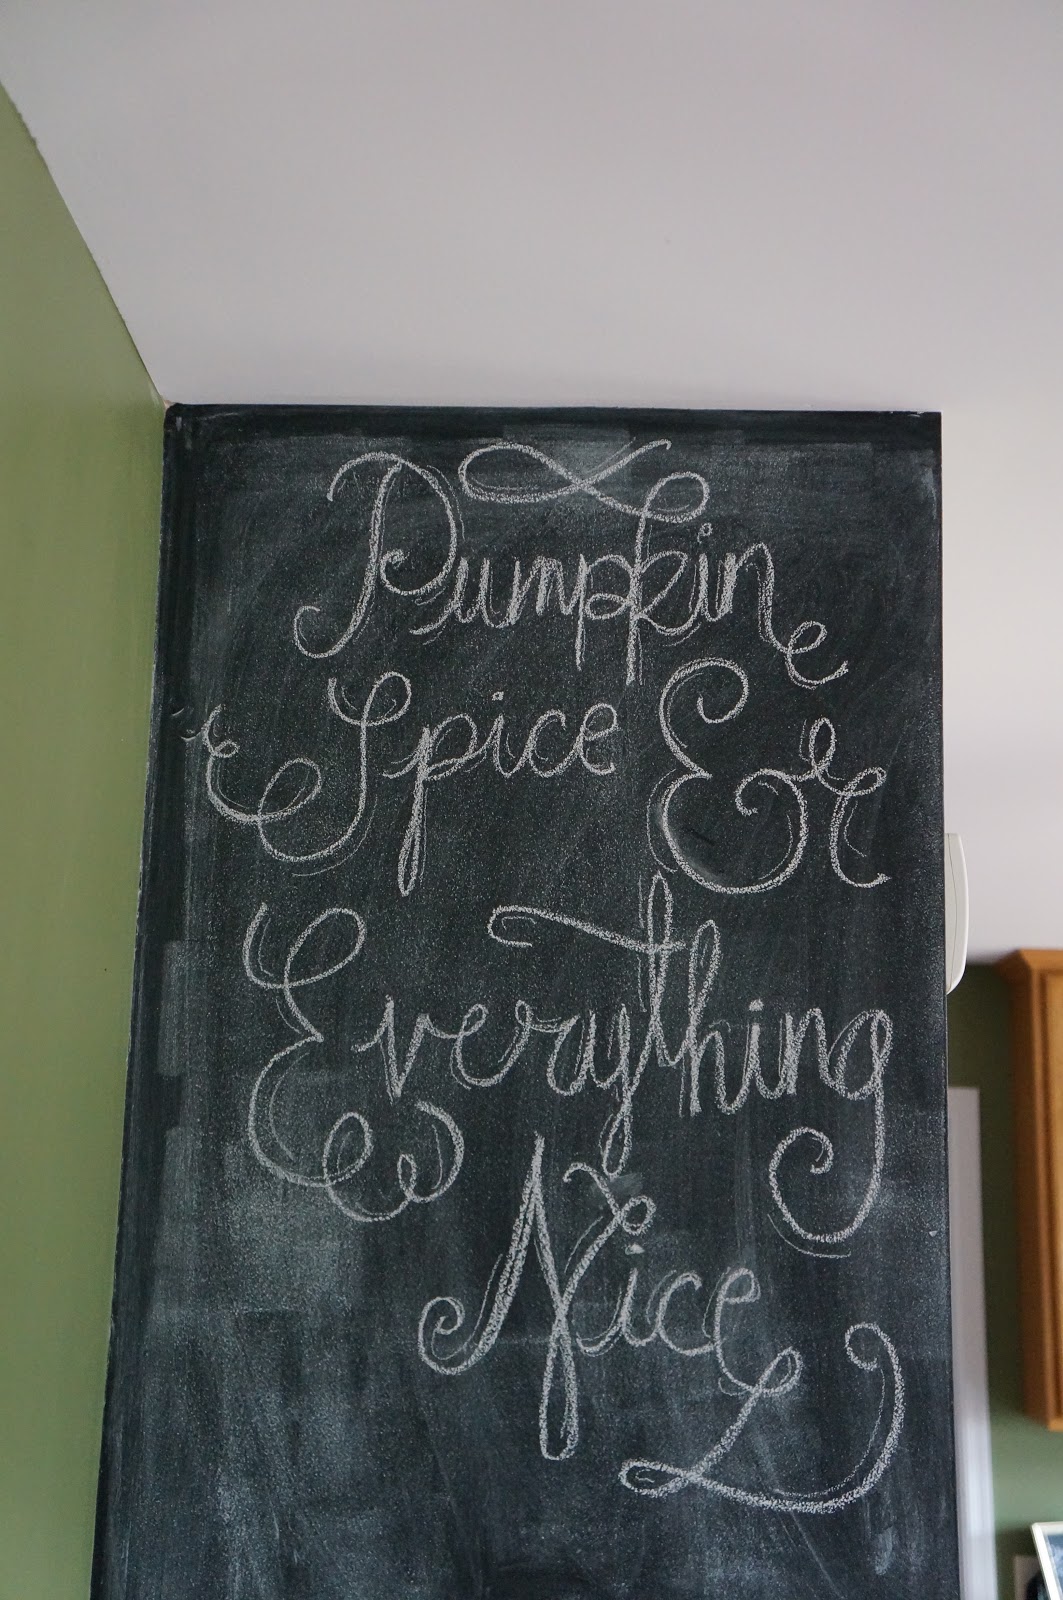 Pumpkin
Spice &
Everything
Nice